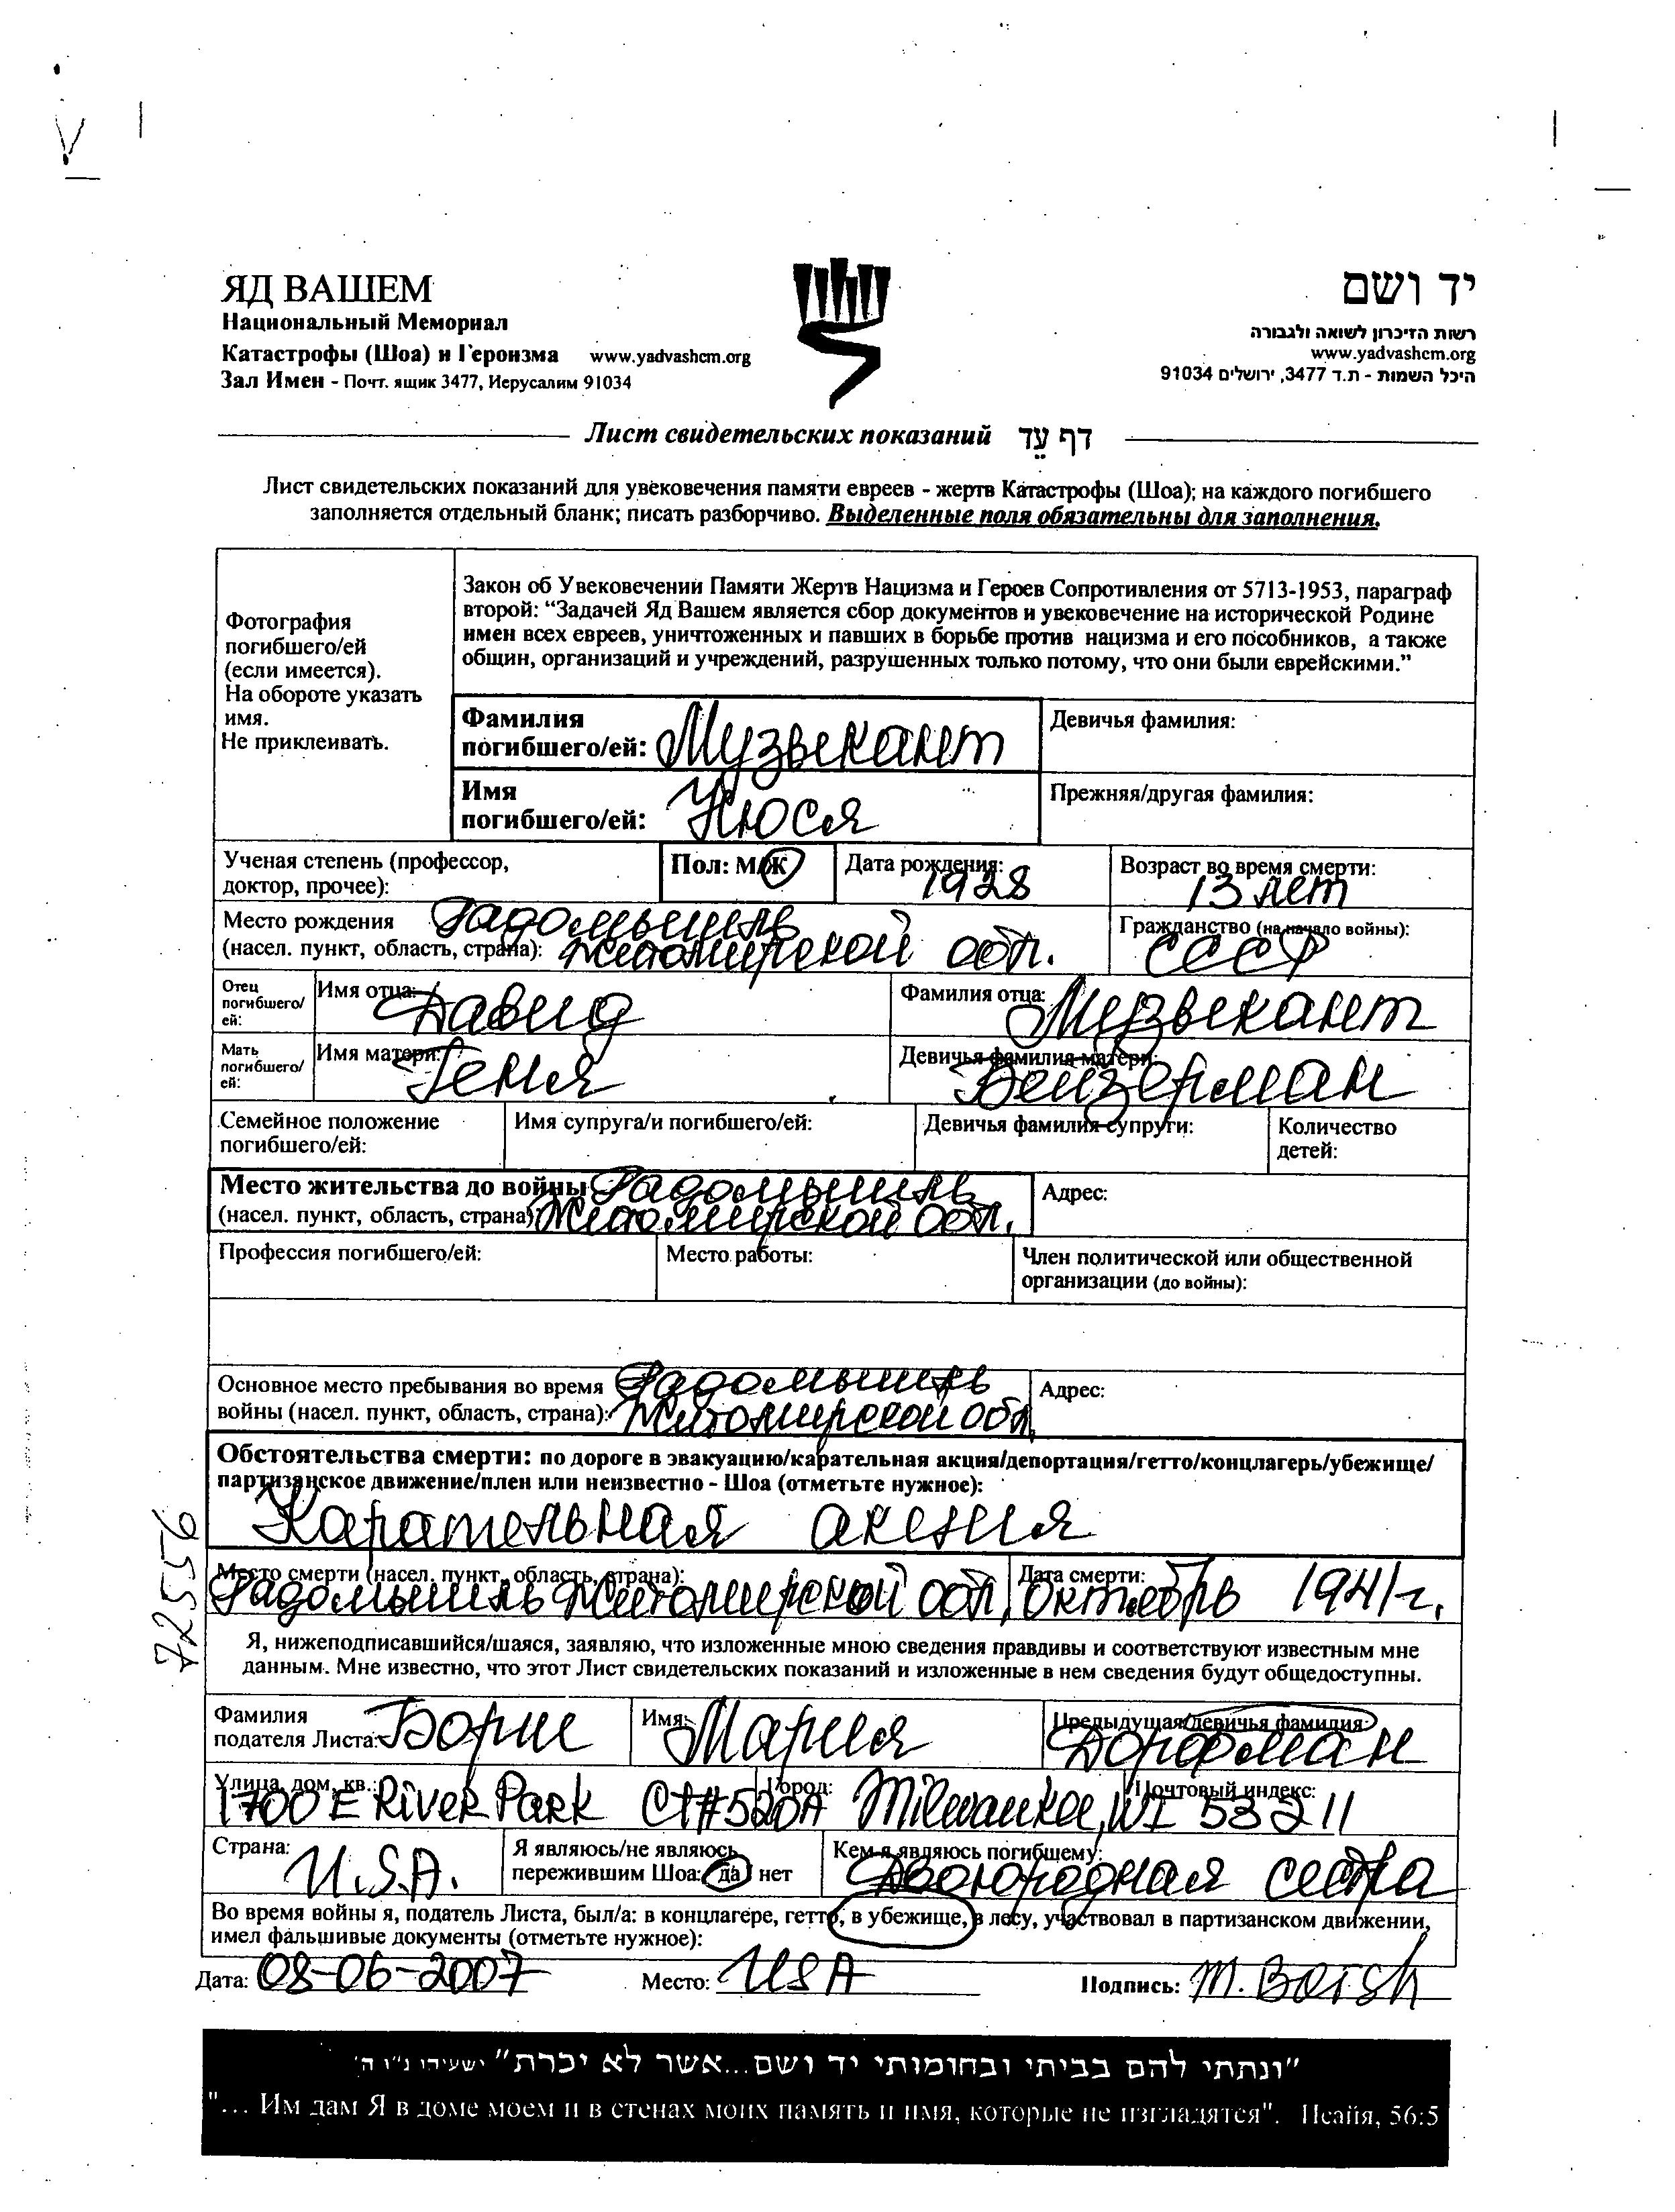 ЯД ВАШЕМ
Национальный Мемориал
Катастрофы (Шоа) и Героизма www.yadvashem.org
Зал Имен - Почт. ящик 3477, Иерусалим 91034
יד ושם
רשות הזיכרון לשואה ולגבורה
www.yadvashem.org
היכל השמות - ת.ד 3477, ירושלים 91034
Лист свидетельских показаний דף עֵד
Лист свидетельских показаний для увековечения памяти евреев - жертв Катастрофы (Шоа); на каждого погибшего
заполняется отдельный бланк; писать разборчиво. Выделенные поля обязательны для заполнения.
Фотография
погибшего/ей
(если имеется).
На обороте указать
имя.
Не приклеивать.
Закон об Увековечении Памяти Жертв Нацизма и Героев Сопротивления от 5713-1953, параграф
второй: “Задачей Яд Вашем является сбор документов и увековечение на исторической Родине
имен всех евреев, уничтоженных и павших в борьбе против нацизма и его пособников, а также
общин, организаций и учреждений, разрушенных только потому, что они были еврейскими.”
Фамилия
погибшего/ей: Музыкант
Девичья фамилия:
Имя
погибшего/ей: Нюся
Прежняя/другая фамилия:
Ученая степень (профессор,
доктор, прочее):
Пол: М/Ж
Дата рождения:
1928
Возраст во время смерти:
13 лет
Место рождения Радомышль
(насел. пункт, область, страна): Житомирской обл.
Гражданство (на начало войны):
СССР
Отец
погибшего/
ей:
Имя отца: Давид
Фамилия отца: Музыкант
Мать
погибшего/
ей:
Имя матери: Геня
Девичья фамилия матери:
Вейзерман
Семейное положение
погибшего/ей:
Имя супруга/и погибшего/ей:
Девичья фамилия супруги:
Количество
детей:
Место жительства до войны Радомышль
(насел. пункт, область, страна): Житомирской обл.
Адрес:
Профессия погибшего/ей:
Место работы:
Член политической или общественной
организации (до войны):
Основное место пребывания во время Радомышль
войны (насел. пункт, область, страна): Житомирской обл.
Адрес:
Обстоятельства смерти: по дороге в эвакуацию/карательная акция/депортация/гетто/концлагерь/убежище/
партизанское движение/плен или неизвестно - Шоа (отметьте нужное):
Карательная акция
72556
Место смерти (насел. пункт, область, страна):
Радомышль Житомирской обл.
Дата смерти:
октябрь 1941г.
Я, нижеподписавшийся/шаяся, заявляю, что изложенные мною сведения правдивы и соответствуют известным мне
данным. Мне известно, что этот Лист свидетельских показаний и изложенные в нем сведения будут общедоступны.
Фамилия
подателя Листа: Борщ
Имя: Мария
Предыдущая/девичья фамилия:
Дорфман
Улица, дом, кв.:
1700 E River Park Ct #520A
Город:
Milwaukee, WI
Почтовый индекс:
53211
Страна:
U.S.A.
Я являюсь/не являюсь
пережившим Шоа: да / нет
Кем я являюсь погибшему:
Двоюродная сестра
Во время войны я, податель Листа, был/а: в концлагере, гетто, в убежище, в лесу, участвовал в партизанском движении,
имел фальшивые документы (отметьте нужное):
Дата: 08-06-2007
Место: USA
Подпись: M. Borsh
"ונתתי להם בביתי ובחומותי יד ושם...אשר לא יכרת" ישעיהו נ"ו ה'
"... Им дам Я в доме моем и в стенах моих память и имя, которые не изгладятся". Исайя, 56:5